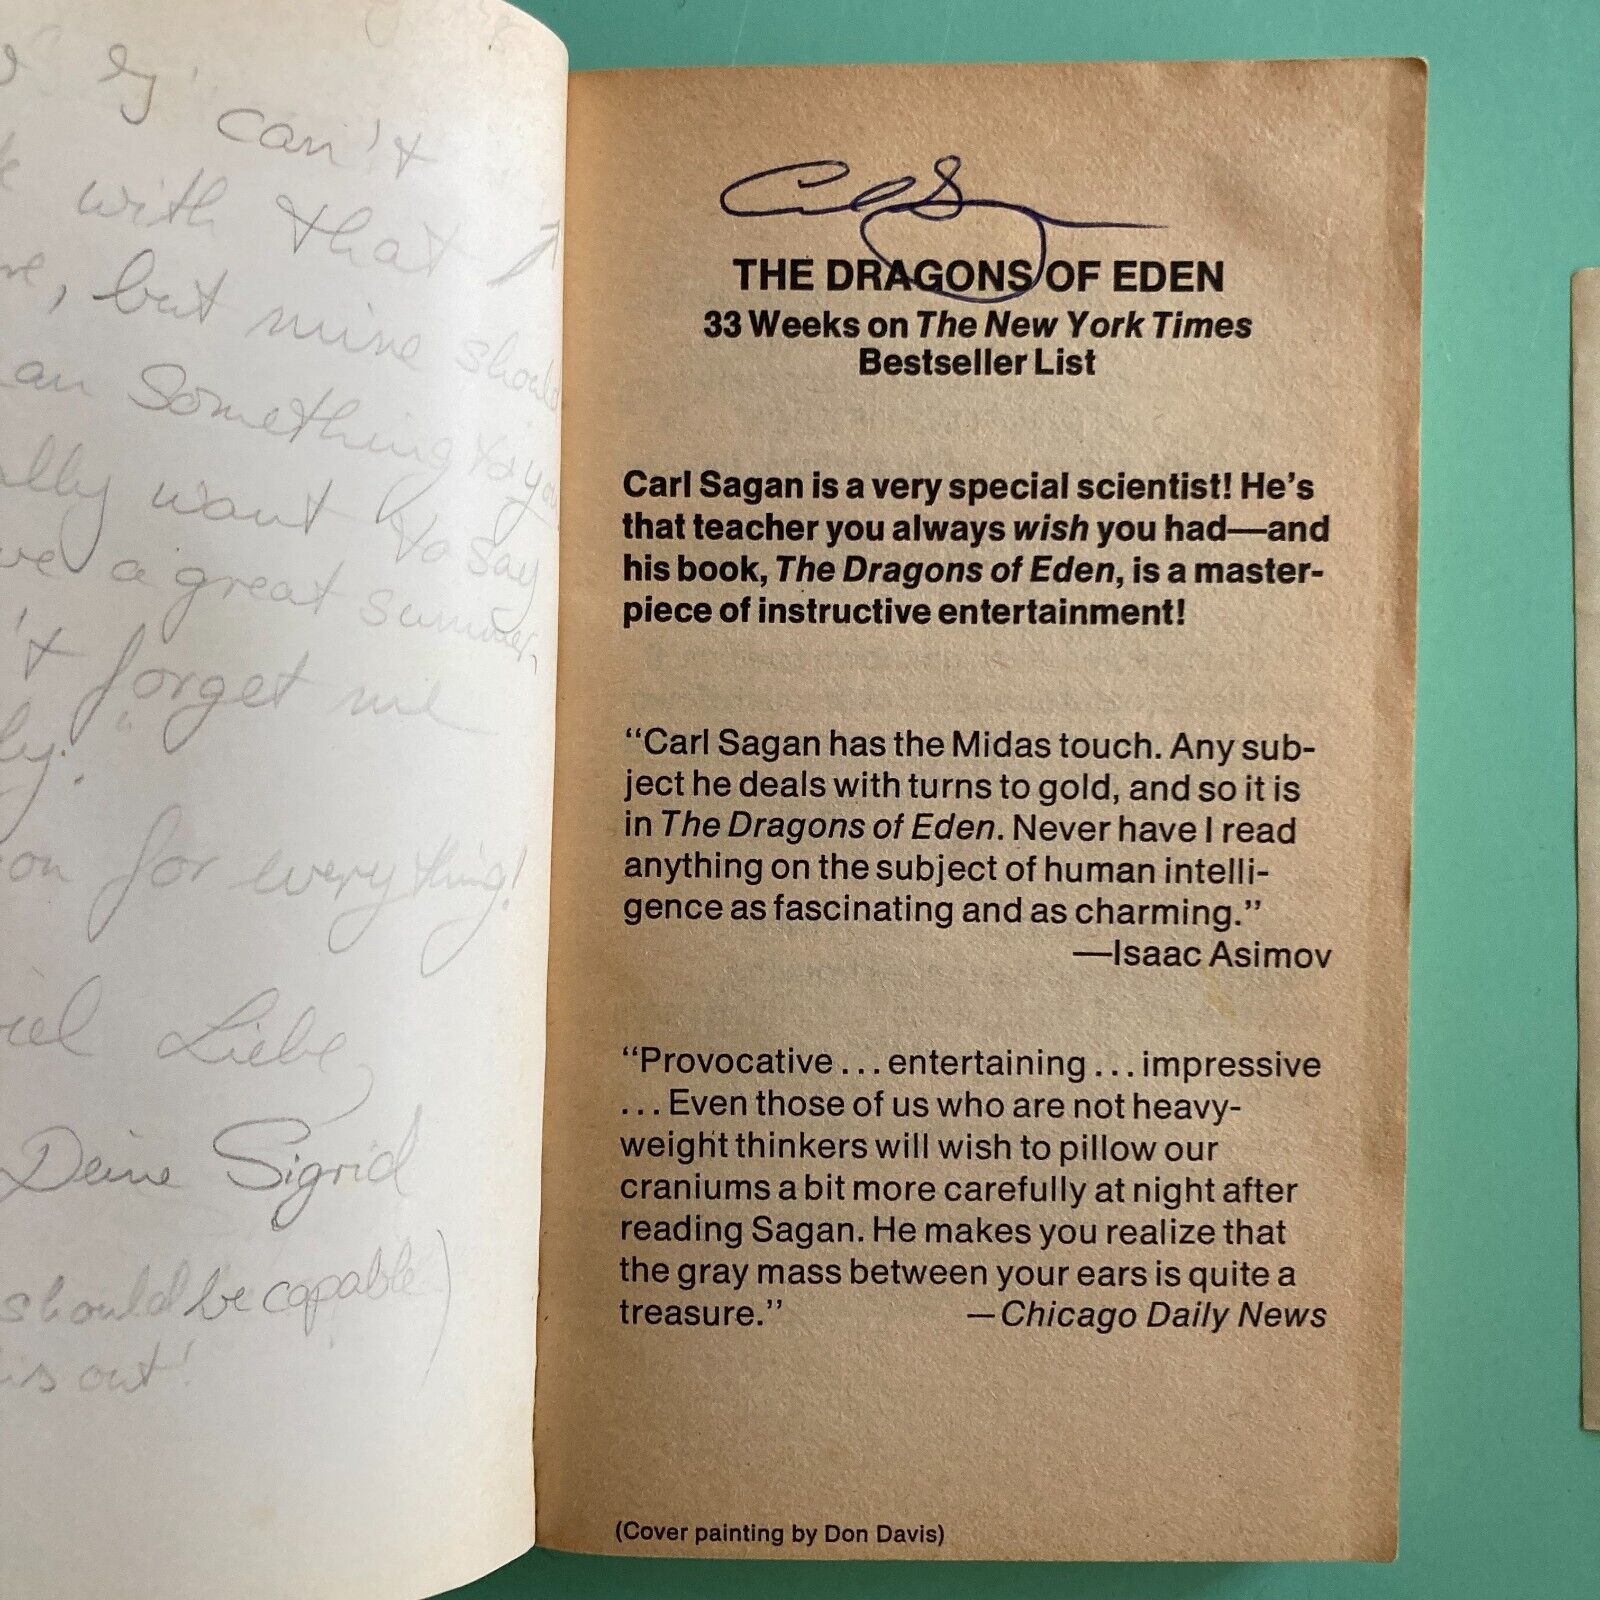 can't
with that
, but mine should
an something to you,
ally want to say
ve a great summer,
't forget me
ly."
on for everything!
iel Liebe,
Deine Sigrid
should be capable)
is out!
Carl Sagan
THE DRAGONS OF EDEN
33 Weeks on The New York Times
Bestseller List
Carl Sagan is a very special scientist! He's
that teacher you always wish you had—and
his book, The Dragons of Eden, is a master-
piece of instructive entertainment!
"Carl Sagan has the Midas touch. Any sub-
ject he deals with turns to gold, and so it is
in The Dragons of Eden. Never have I read
anything on the subject of human intelli-
gence as fascinating and as charming."
—Isaac Asimov
"Provocative . . . entertaining . . . impressive
. . . Even those of us who are not heavy-
weight thinkers will wish to pillow our
craniums a bit more carefully at night after
reading Sagan. He makes you realize that
the gray mass between your ears is quite a
treasure." —Chicago Daily News
(Cover painting by Don Davis)